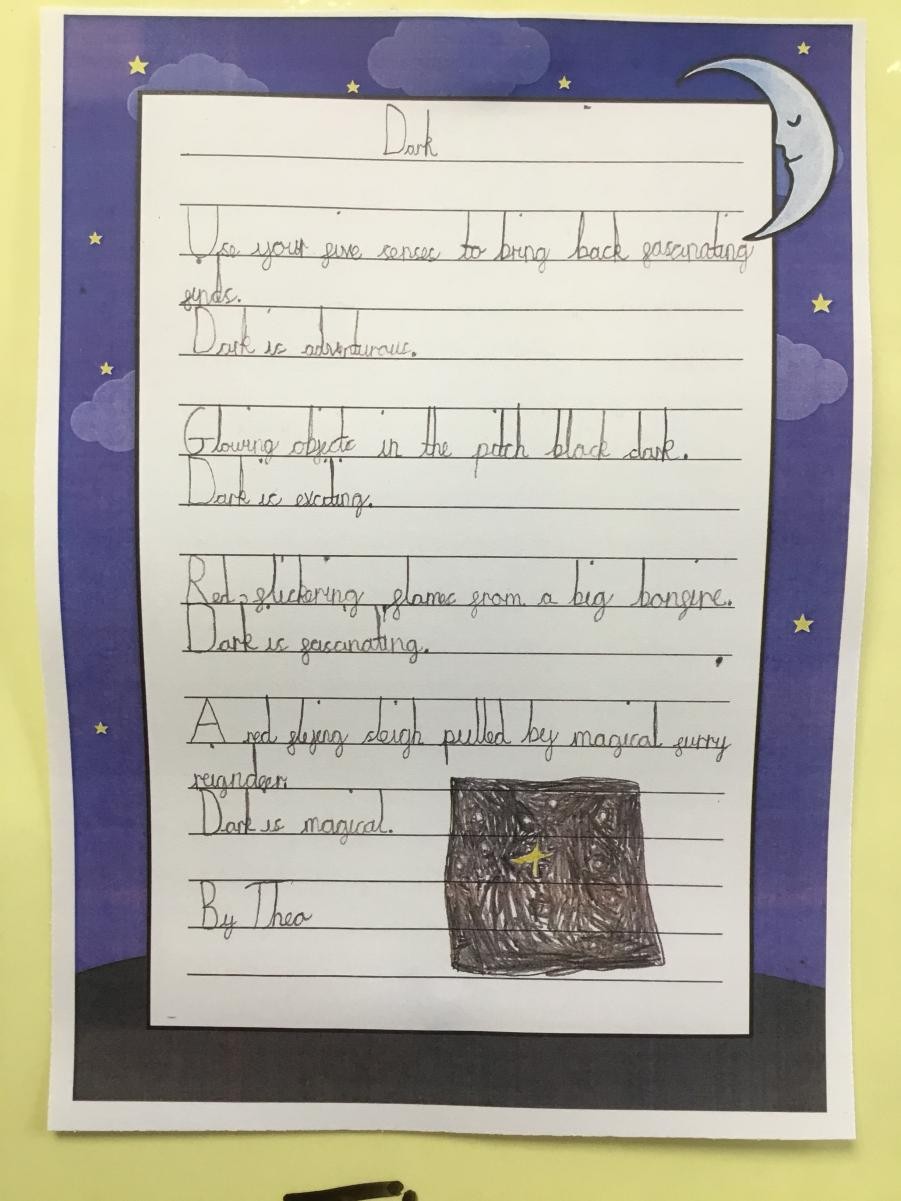 Dark
Use your five senses to bring back fascinating
finds.
Dark is adventurous.
Glowing objects in the pitch black dark.
Dark is exciting.
Red, flickering flames from a big bonfire.
Dark is fascinating.
A red flying sleigh pulled by magical furry
reigndeer.
Dark is magical.
By Thea